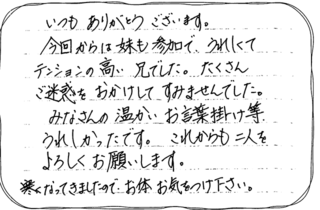 いつも ありがとう ございます。
今回からは妹も参加で、うれしくて
テンションの高い兄でした。たくさん
ご迷惑をおかけしてすみませんでした。
みなさんの温かいお言葉掛け等、
うれしかったです。これからも二人を
よろしくお願いします。
寒くなってきましたので、お体お気をつけ下さい。